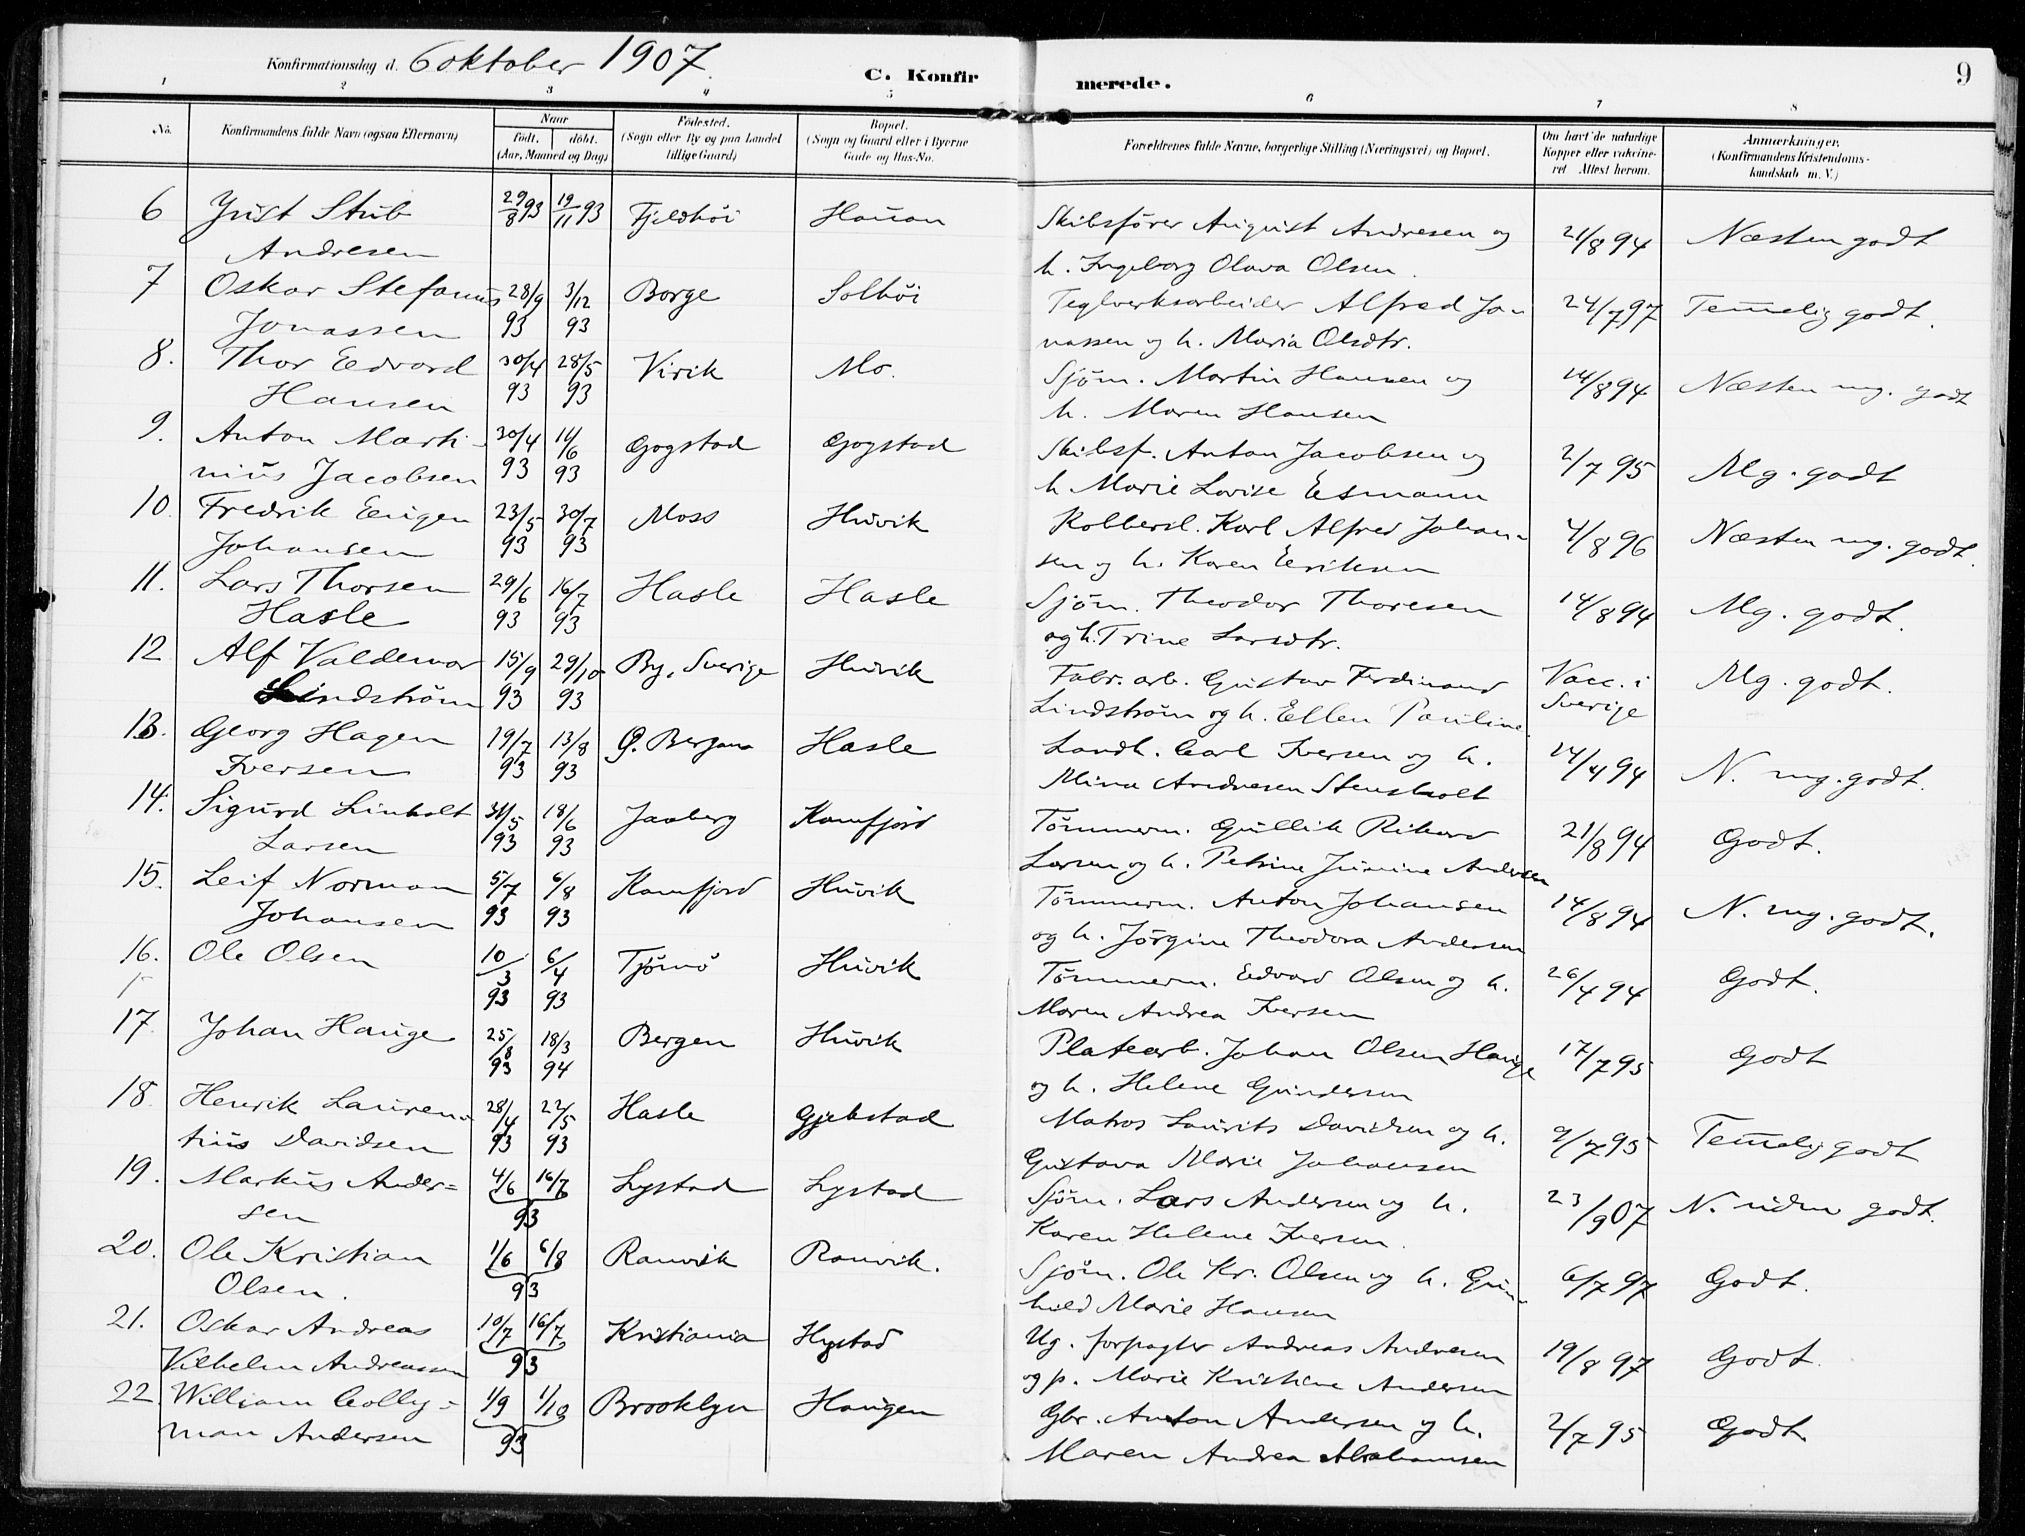 Konfirmationsdag d. 6 oktober 1907.
C. Konfirmerede.
9
1 2 3 4 5 6 7 8
No. Konfirmandens fulde Navn (ogsaa Efternavn) Naar født. døbt. (Aar, Maaned og Dag) Fødested. (Sogn eller By og paa Landet tillige Gaard) Bopæl. (Sogn og Gaard eller i Byerne Gade og Hus-No. Forældrenes fulde Navne, borgerlige Stilling (Næringsvei) og Bopæl. Om havt de naturlige Kopper eller vaksineret Attest herom. Anmærkninger. (Konfirmandens Kristendomskundskab m. V.)
6 Just Stub 29/8 93 19/11 93 Fjeldhøi Hauan Skibsfører August Andresen og 21/8 94 Næsten godt
Andresen h. Ingeborg Olava Olsen.
7 Oskar Stefanus 28/9 3/12 Borge Solhøi Teglverksarbeider Alfred Jo- 24/7 97 Temmelig godt.
Jonassen 93 93 nassen og h. Maria Olsdtr.
8. Thor Edvard 30/4 28/5 Virik Mo. Sjøm. Martin Hansen og 14/8 94 Næsten mg. godt
Hansen 93 93 h. Maren Hansen
9. Anton Marti- 30/4 11/6 Gogstad Gogstad Skibsf. Anton Jacobsen og 2/7 95 Mg. godt
nius Jacobsen 93 93 h Marie Lovise Esmann
10. Fredrik Eugen 23/5 30/7 Moss Huvik Kobbersl. Karl Alfred Johan- 4/8 96 Næsten mg. godt.
Johansen 93 93 sen og h. Karen Eriksen
11. Lars Thorsen 29/6 16/7 Hasle Hasle Sjøm. Theodor Thoresen 14/8 94 Mg. godt.
Hasle 93 93 og h. Trine Larsdtr.
12 Alf Valdemar 15/9 29/10 By, Sverige Huvik Fabr. arb. Gustav Ferdinand Vacc. i Mg. godt.
Lindstrøm 93 93 Lindstrøm og h. Ellen Pauline Sverige
13. Georg Hagen 19/7 13/8 Hasle Landh. Carl Iversen og h. 14/4 94 N. mg. godt.
Iversen 93 93 Mina Andresen Stensholt
14. Sigurd Linholt 31/5 18/6 Jaaberg Kamfjord Tømmerm. Gullik Rikard 21/8 94 Godt.
Larsen 93 93 Larsen og h. Petrine Jumine Andersen
15. Leif Norman 5/7 6/8 Kamfjord Huvik Tømmerm. Anton Johansen 14/8 94 N. mg. godt.
Johansen 93 93 og h. Jørgine Theodora Andersen
16. Ole Olsen 10/3 6/4 Tjømø Huvik Tømmerm. Edvard Olsen og h. 26/4 94 Godt.
93 93 Maren Andrea Iversen
17. Johan Hauge 25/8 18/3 Bergen Huvik Platearb. Johan Olsen Hauge 17/7 95 Godt
93 94 og h. Helene Gundersen
18. Henrik Lauren- 28/4 22/5 Hasle Gjekstad Matros Laurits Davidsen og h. 9/7 95 Temmelig godt
tius Davidsen 93 93 Gustava Marie Johansen
19. Markus Ander= 4/6 16/7 Lystad Lystad Sjøm. Lars Andersen og h. 23/9 07 N. uden godt.
sen 93 Karen Helene Iversen.
20. Ole Kristian 1/6 6/8 Ranvik Ranvik. Sjøm. Ole Kr. Olsen og h. Gun- 6/7 97 Godt.
Olsen. 93 hild Marie Hansen
21. Oskar Andreas 10/7 16/7 Kristiania Hystad Ug. forpagter Andreas Andresen 19/8 97 Godt.
Vilhelm Andreassen 93 og p. Marie Kristine Andersen
22. William Colly- 1/9 1/10 Brooklyn Haugen Gbr. Anton Andersen og h. 2/7 95 Godt.
man Andersen 93 Maren Andrea Abrahamsen